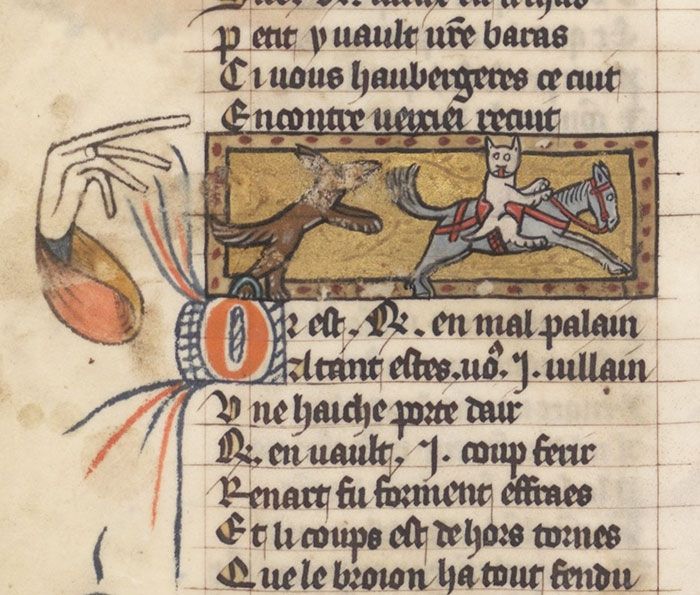 Petit y uault ur̄e baras
Ci uous haubergeres ce cuit
Encontre recuit
Or est .R. en mal palain
Altant estes .uoꝰ .J. uillain
Une haiche porte dair
R. en uault .J. coup ferir
Renart fu forment effraes
Et li coups est dehors tornes
Que le broion ha tout fendu